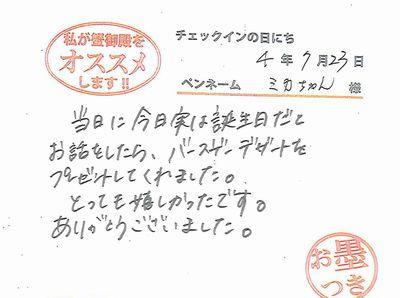 私が蟹御殿を
オススメ
します!!
チェックインの日にち
4年7月23日
ペンネーム ミカちゃん 様
当日に今日実は誕生日だと
お話をしたら、バースデーデザートを
プレゼントしてくれました。
とっても嬉しかったです。
ありがとうございました。
お墨
つき